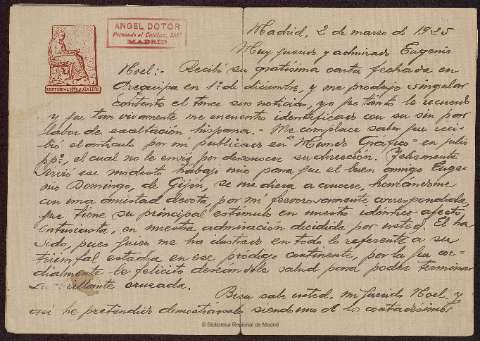 ANGEL DOTOR
MADRID
Madrid, 2 de marzo de 1925
Muy querido y admirado Eugenio
Noel:- Recibí su gratísima carta fechada en
Arequipa en 1º de diciembre, y me produjo singular
contento el tener sus noticias, ya que tanto le recuerdo
y que tan vivamente me encuentro identificado con su sin par
labor de exaltación hispana.- Me complace saber que reci-
bió el artículo por mí publicado en "Mundo Gráfico" en julio
ppº, el cual no le envié por desconocer su dirección.
modesto trabajo mío para que el buen amigo Euge-
nio Domingo, de Gijón, se me diera a conocer, honrándome
con una amistad devota, por mí fervorosamente correspondida,
que tiene su principal estímulo en nuestro idéntico afecto
entusiasta, en nuestra admiración decidida por usted. El ha
sido, pues, quien me ha ilustrado en todo lo referente a su
triunfal estadía en ese prodigio continente, por la que cor-
dialmente le felicito deseándole salud para poder terminar
su brillante cruzada.
Bien sabe usted, mi querido Noel, y
así he pretendido demostrárselo siendo uno de los contadísimos
© Biblioteca Regional de Madrid